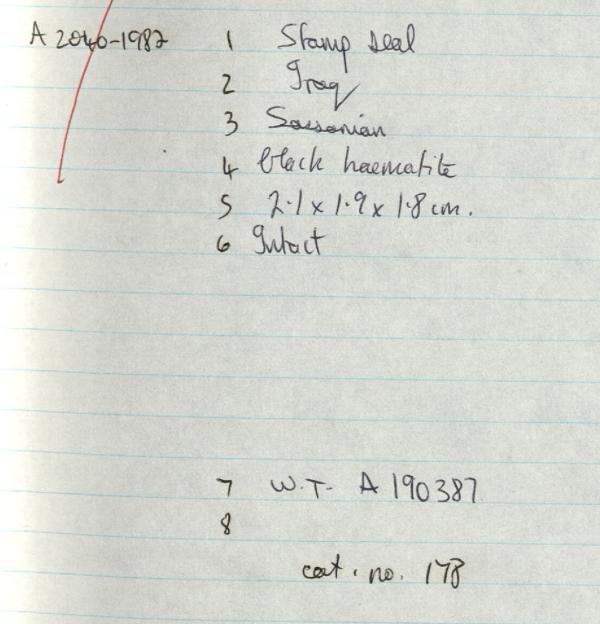 A 2040-1982 1 Stamp seal
2 Iraq
3 Sassanian
4 black haematite
5 2.1 x 1.9 x 1.8 cm.
6 Intact
7 W.T. A 190387
8
cat. no. 178